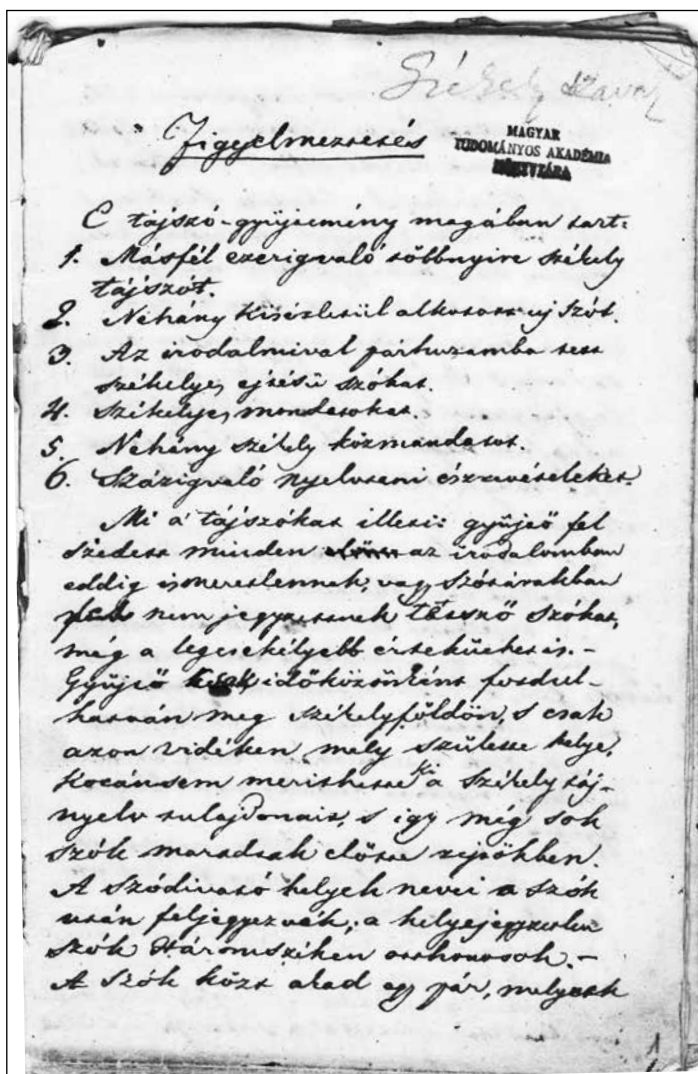 Székely szavak
Figyelmeztetés
MAGYAR
TUDOMÁNYOS AKADÉMIA
KÖNYVTÁRA
E tájszó-gyűjtemény magában tart:
1. Másfél ezerigvaló többnyire székely
tájszót.
2. Néhány kísérletül alkotott uj szót.
3. Az irodalmival párhuzamba tett
székelyes ejtésü szókat.
4. Székelyes mondatokat.
5. Néhány székely közmondatot.
6. Százigvaló nyelvtani észrevételeket.
Mi a' tájszókat illeti: gyűjtő fel
szedett minden az irodalomban
eddig ismeretlennek, vagy szótárakban
nem jegyzettnek tetsző szókat,
meg a legcsekélyebb értéküeket is. –
Gyűjtő csak időközönként fordul-
hatván meg székelyföldön, s csak
azon vidéken, mely születte helye,
korántsem merithette ki a székely táj-
nyelv tulajdonait, s igy még sok
szók maradtak előtte rejtökben.
A szódivató helyek nevei a szók
után feljegyezvék, a helyejegyzetlen
szók Háromszéken otthonosok. –
A szók közt akad egy pár, melyek
1